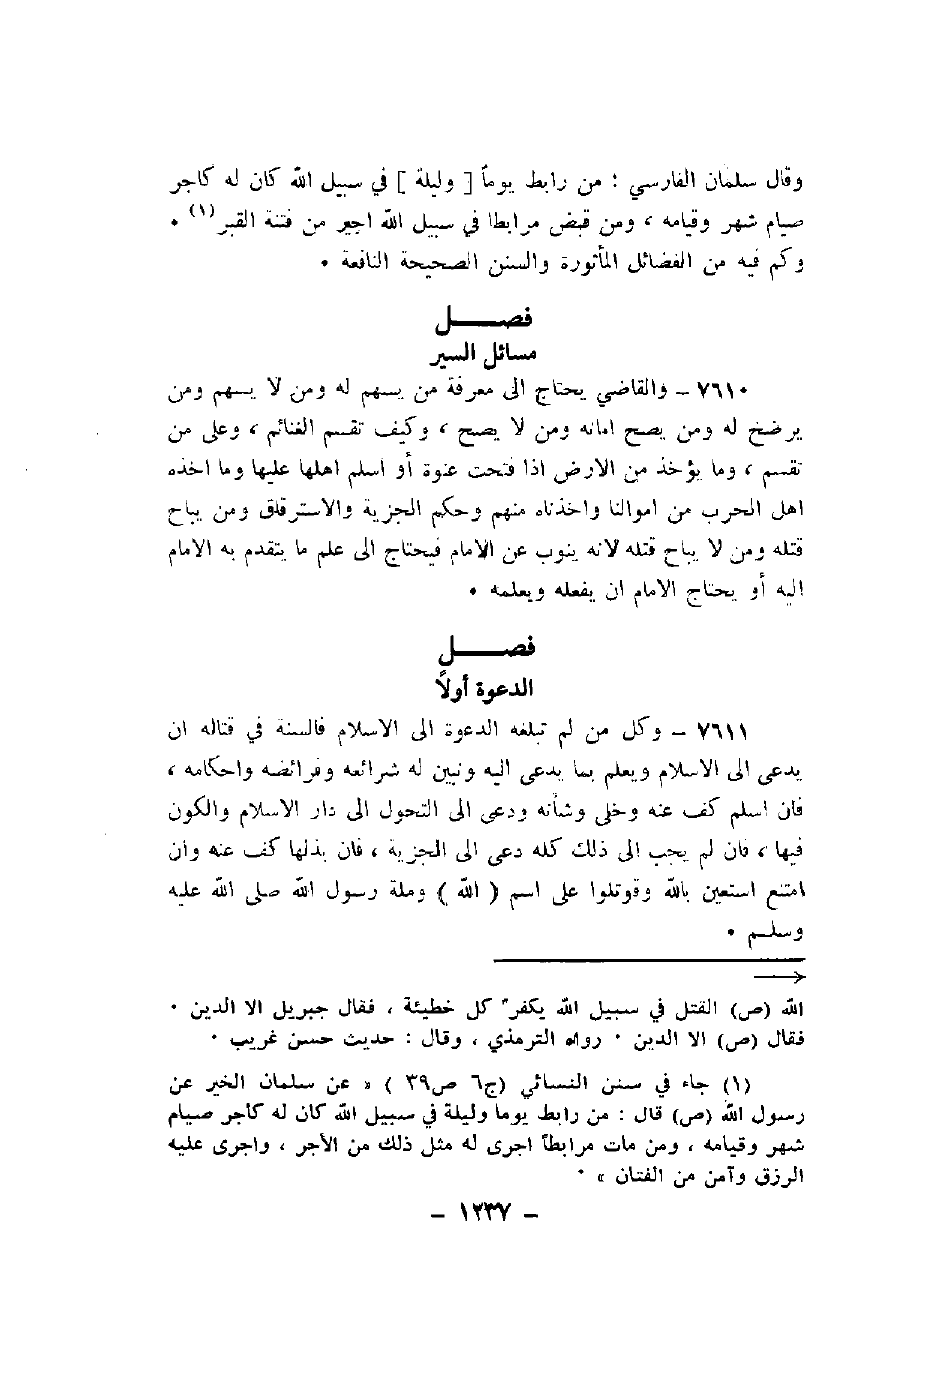 وقال سلمان الفارسي : من رابط يوماً [ وليلة ] في سبيل الله كان له كاجر
صيام شهر وقيامه ، ومن قبض مرابطا في سبيل الله اجير من فتنة القبر(١) .
وكم فيه من الفضائل المأثورة والسنن الصحيحة النافعة .
فصــــل
مسائل السير
٧٦١٠ – والقاضي يحتاج الى معرفة من يسهم له ومن لا يسهم ومن
يرضخ له ومن يصح امانه ومن لا يصح ، وكيف تقسم الغنائم ، وعلى من
تقسم ، وما يؤخذ من الارض اذا فتحت عنوة أو اسلم اهلها عليها وما اخذه
اهل الحرب من اموالنا واخذناه منهم وحكم الجزية والاسترقاق ومن يباح
قتله ومن لا يباح قتله لانه ينوب عن الامام فيحتاج الى علم ما يتقدم به الامام
اليه أو يحتاج الامام ان يفعله ويعلمه .
فصــــل
الدعوة أولاً
٧٦١١ – وكل من لم تبلغه الدعوة الى الاسلام فالسنة في قتاله ان
يدعى الى الاسلام ويعلم بما يدعى اليه ونبين له شرائعه وفرائضه واحكامه ،
فان اسلم كف عنه وخلي وشأنه ودعي الى التحول الى دار الاسلام والكون
فيها ، فان لم يجب الى ذلك كله دعي الى الجزية ، فان بذلها كف عنه وان
امتنع استعين بالله وقوتلوا على اسم ( الله ) وملة رسول الله صلى الله عليه
وسلم .
الله (ص) القتل في سبيل الله يكفر كل خطيئة ، فقال جبريل الا الدين .
فقال (ص) الا الدين . رواه الترمذي ، وقال : حديث حسن غريب .
(١) جاء في سنن النسائي (ج٦ ص٣٩ ) « عن سلمان الخير عن
رسول الله (ص) قال : من رابط يوما وليلة في سبيل الله كان له كاجر صيام
شهر وقيامه ، ومن مات مرابطاً اجرى له مثل ذلك من الأجر ، واجرى عليه
الرزق وآمن من الفتان » .
– ١٢٣٧ –